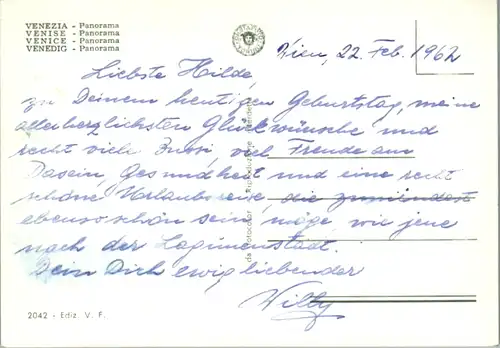 VENEZIA - Panorama
VENISE - Panorama
VENICE - Panorama
VENEDIG - Panorama
Wien, 22. Feb. 1962
Liebste Hilde,
zu Deinem heutigen Geburtstag, meine
allerherzlichsten Glückwünsche und
recht viele Bussi, viel Freude am
Dasein, Gesundheit und eine recht
schöne Urlaubsreise, die zumindest
ebensoschön sein möge, wie jene
nach der Lagunenstadt.
Dein Dich ewig liebender
Willy
2042 - Ediz. V. F.